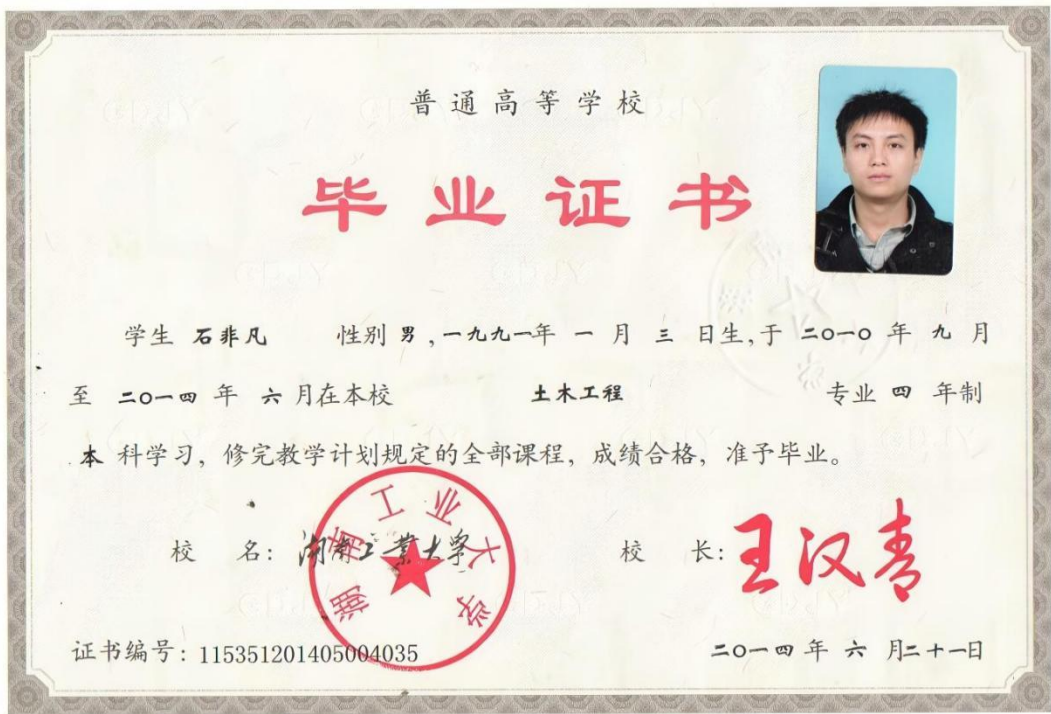 普通高等学校
毕业证书
学生 石非凡 性别 男,一九九一年 一 月 三 日生,于 二〇一〇 年 九 月
至 二〇一四 年 六 月在本校 土木工程 专业 四 年制
本 科学习，修完教学计划规定的全部课程，成绩合格，准予毕业。
校 名：湖南工业大学 校 长：王汉青
湖南工业大学
证书编号：115351201405004035 二〇一四 年 六 月二十一日